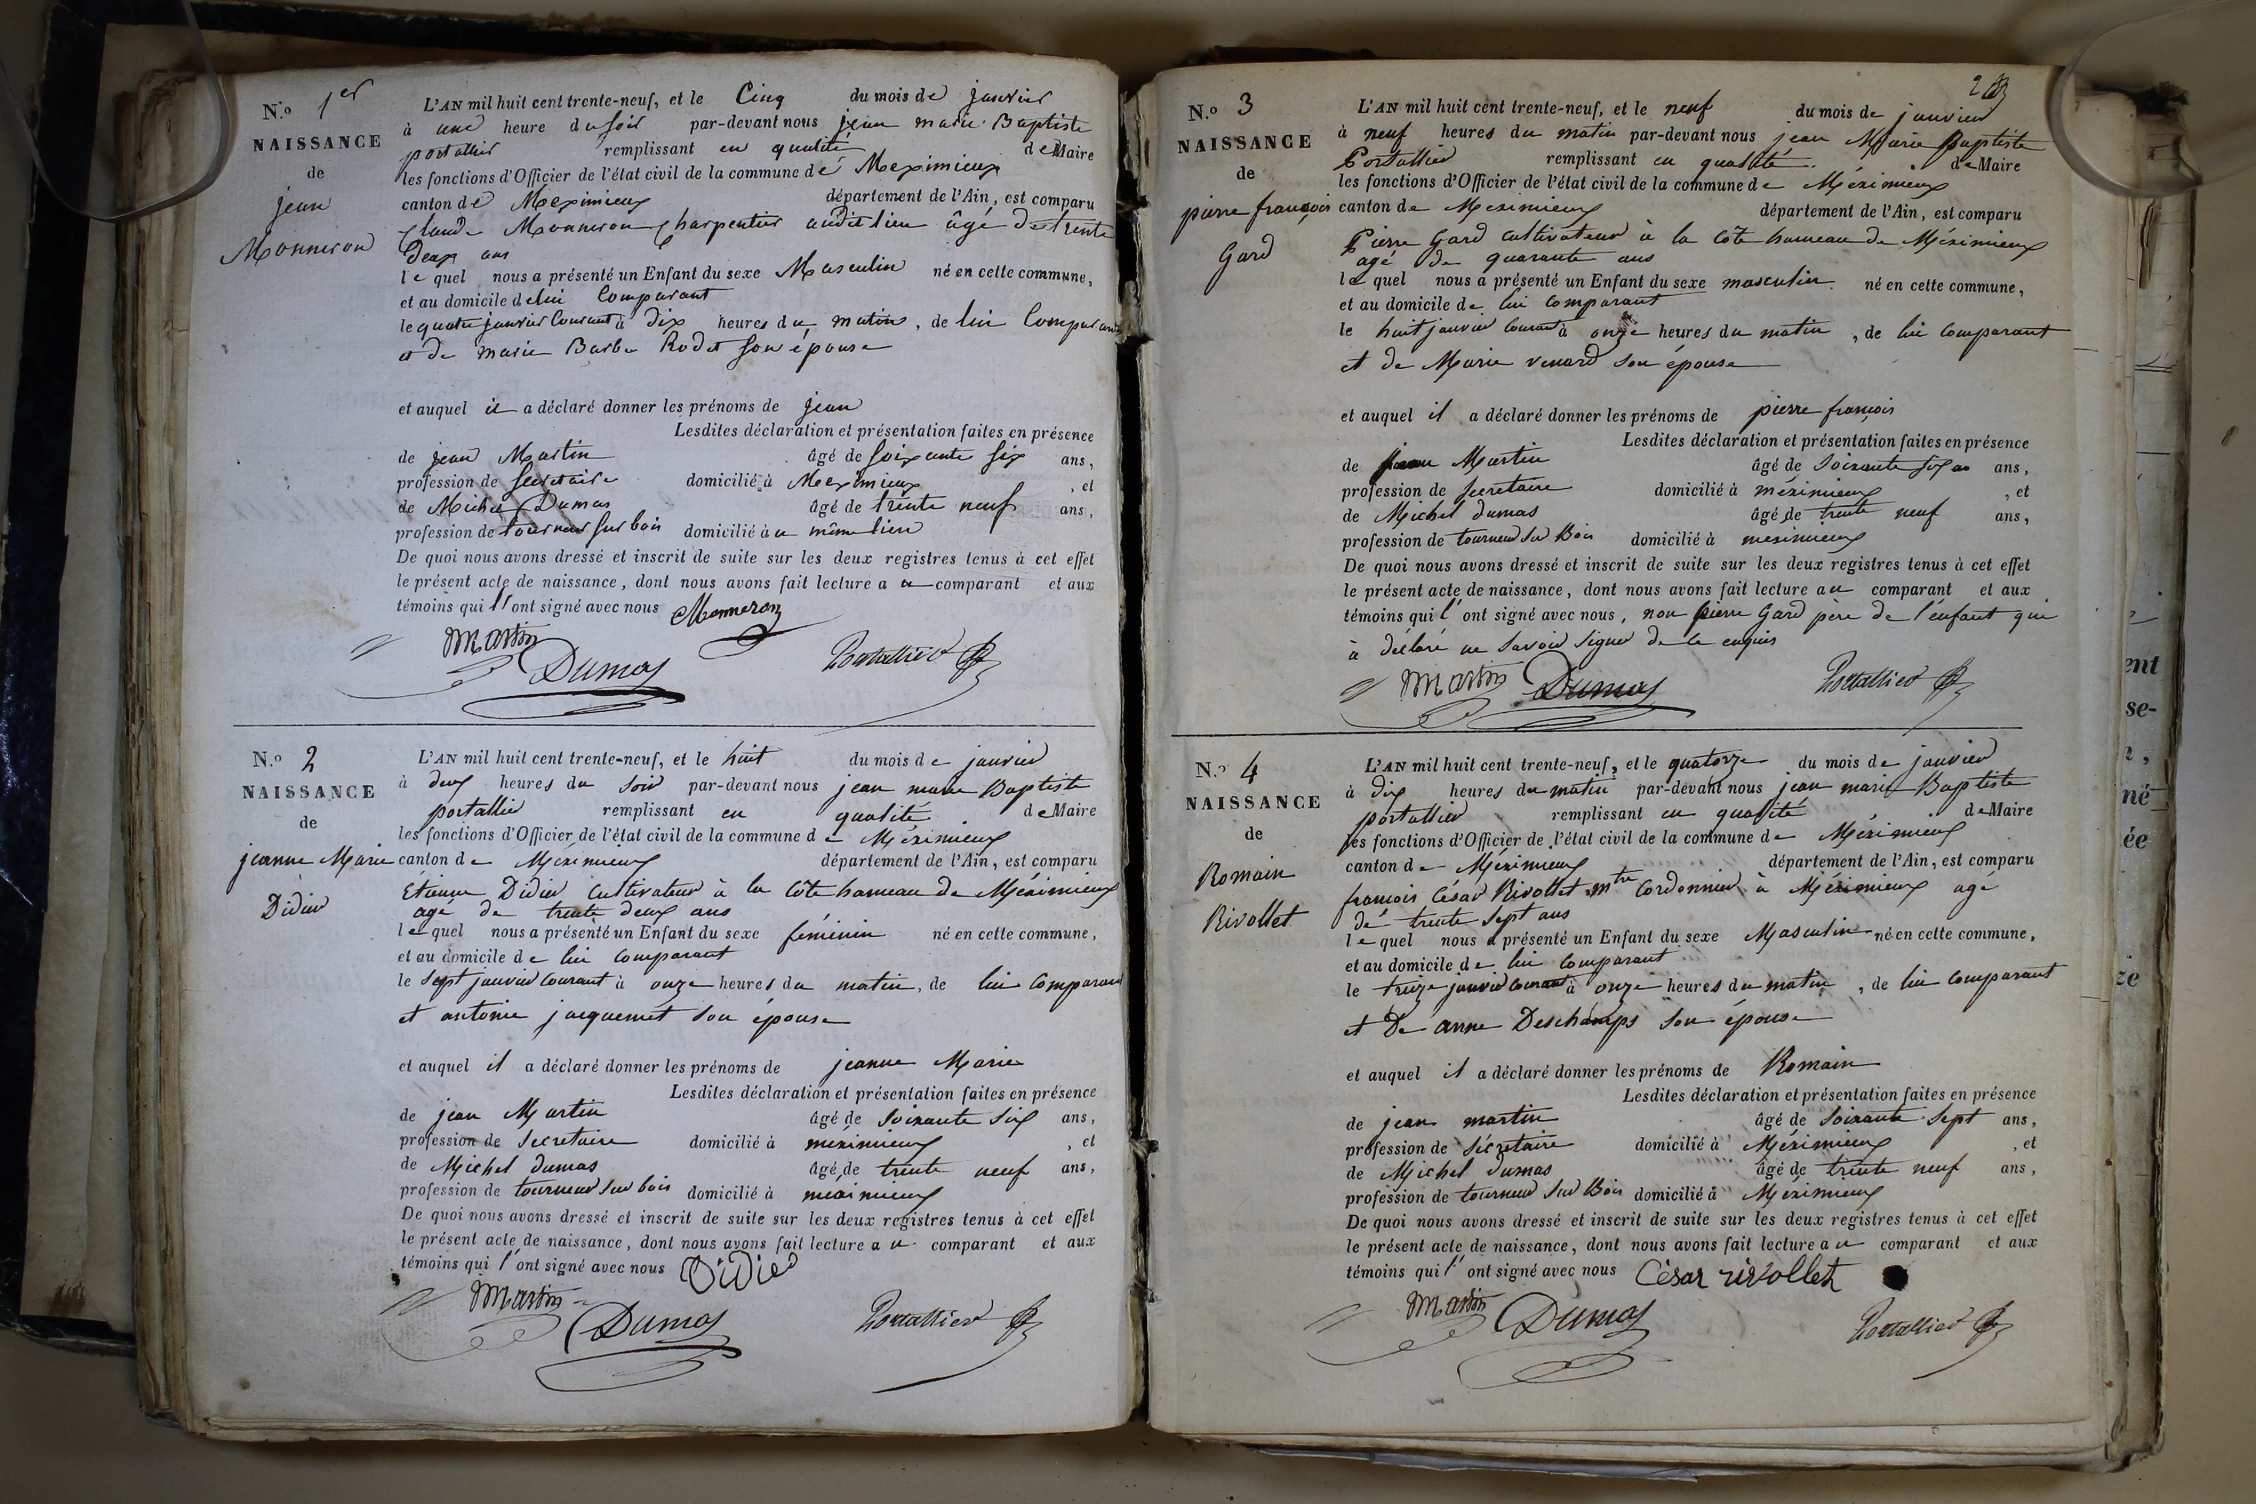 N.o 1er
NAISSANCE
de
jean
Monneron
L'AN mil huit cent trente-neuf, et le Cinq du mois de janvier
à une heure du soir par-devant nous jean marie Baptiste
portallier remplissant en qualité de Maire
les fonctions d'Officier de l'état civil de la commune de Meximieux
canton de Meximieux département de l'Ain, est comparu
Claude Monneron Charpentier audit lieu âgé de trente
deux ans
le quel nous a présenté un Enfant du sexe Masculin né en cette commune,
et au domicile de lui Comparant
le quatre janvier Courant à dix heures du matin, de lui Comparant
et de marie Barbe Rodet son épouse
et auquel il a déclaré donner les prénoms de jean
Lesdites déclaration et présentation faites en présence
de jean Martin âgé de soixante six ans,
profession de Secretaire domicilié à Meximieux, et
de Michel Dumas âgé de trente neuf ans,
profession de tourneur sur bois domicilié à u même lieu
De quoi nous avons dressé et inscrit de suite sur les deux registres tenus à cet effet
le présent acte de naissance, dont nous avons fait lecture a u comparant et aux
témoins qui l' ont signé avec nous Monneron
Martin
Dumas
Portallier
N.o 2
NAISSANCE
de
jeanne Marie
Didier
L'AN mil huit cent trente-neuf, et le huit du mois de janvier
à deux heures du soir par-devant nous jean marie Baptiste
portallier remplissant en qualité de Maire
les fonctions d'Officier de l'état civil de la commune de Méximieux
canton de Méximieux département de l'Ain, est comparu
Etienne Didier Cultivateur à la Côte hameau de Méximieux
agé de trente deux ans
le quel nous a présenté un Enfant du sexe féminin né en cette commune,
et au domicile de lui comparant
le sept janvier Courant à onze heures du matin, de lui comparant
et antonie jacquemet son épouse
et auquel il a déclaré donner les prénoms de jeanne Marie
Lesdites déclaration et présentation faites en présence
de jean Martin âgé de soixante six ans,
profession de Secretaire domicilié à méximieux, et
de Michel dumas âgé de trente neuf ans,
profession de tourneur sur bois domicilié à méximieux
De quoi nous avons dressé et inscrit de suite sur les deux registres tenus à cet effet
le présent acte de naissance, dont nous avons fait lecture a u comparant et aux
témoins qui l' ont signé avec nous Didier
Martin
Dumas
Portallier
N.o 3
NAISSANCE
de
pierre françois
Gard
L'AN mil huit cent trente-neuf, et le neuf du mois de janvier
à neuf heures du matin par-devant nous jean Marie Baptiste
Portallier remplissant en qualité de Maire
les fonctions d'Officier de l'état civil de la commune de Méximieux
canton de Meximieux département de l'Ain, est comparu
Pierre Gard Cultivateur à la Côte hameau de Méximieux
agé de quarante ans
le quel nous a présenté un Enfant du sexe masculin né en cette commune,
et au domicile de lui Comparant
le huit janvier courant à onze heures du matin, de lui Comparant
et de Marie venard son épouse
et auquel il a déclaré donner les prénoms de pierre françois
Lesdites déclaration et présentation faites en présence
de jean Martin âgé de soixante ans,
profession de Secretaire domicilié à méximieux, et
de Michel dumas âgé de trente neuf ans,
profession de tourneur sur Bois domicilié à meximieux
De quoi nous avons dressé et inscrit de suite sur les deux registres tenus à cet effet
le présent acte de naissance, dont nous avons fait lecture a u comparant et aux
témoins qui l' ont signé avec nous, non pierre Gard père de l'enfant qui
à déclaré ne savoir signer de ce enquis
Martin
Dumas
Portallier
N.o 4
NAISSANCE
de
Romain
Rivollet
L'AN mil huit cent trente-neuf, et le quatorze du mois de janvier
à dix heures du matin par-devant nous jean marie Baptiste
portallier remplissant en qualité de Maire
les fonctions d'Officier de l'état civil de la commune de Méximieux
canton de Méximieux département de l'Ain, est comparu
françois César Rivollet mtre Cordonnier à Méximieux agé
de trente sept ans
le quel nous a présenté un Enfant du sexe Masculin né en cette commune,
et au domicile de lui comparant
le treize janvier courant à onze heures du matin, de lui comparant
et De anne Deschamps son épouse
et auquel il a déclaré donner les prénoms de Romain
Lesdites déclaration et présentation faites en présence
de jean martin âgé de soixante sept ans,
profession de Sécretaire domicilié à Méximieux, et
de Michel dumas âgé de trente neuf ans,
profession de tourneur sur Bois domicilié à Méximieux
De quoi nous avons dressé et inscrit de suite sur les deux registres tenus à cet effet
le présent acte de naissance, dont nous avons fait lecture a u comparant et aux
témoins qui l' ont signé avec nous César rivollet
Martin
Dumas
Portallier
ent
se-
né
ée
ze